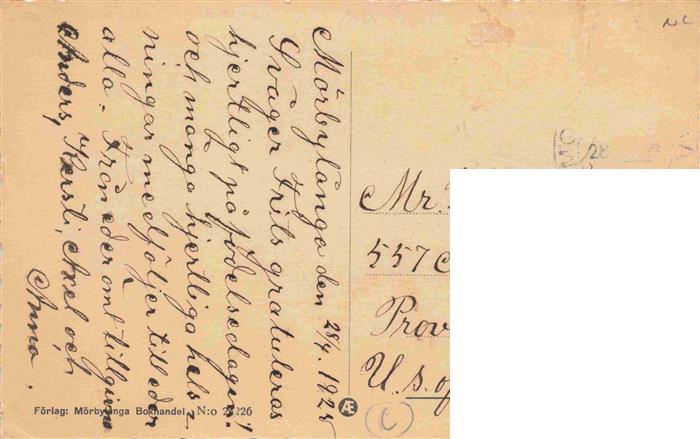 Mörbylånga den 28/4. 1928
Svåger Frits gratuleras
hjertligt på födelsedagen!
och många hjertliga hels-
ningar medföljer till eder
alla. Från eder omt tillgivna
Anders, Kersti, Axel och
Anna.
Förlag: Mörbylånga Bokhandel N:o 26226
Æ
Mr.
557
Prov
U.S. of
28
NC
C